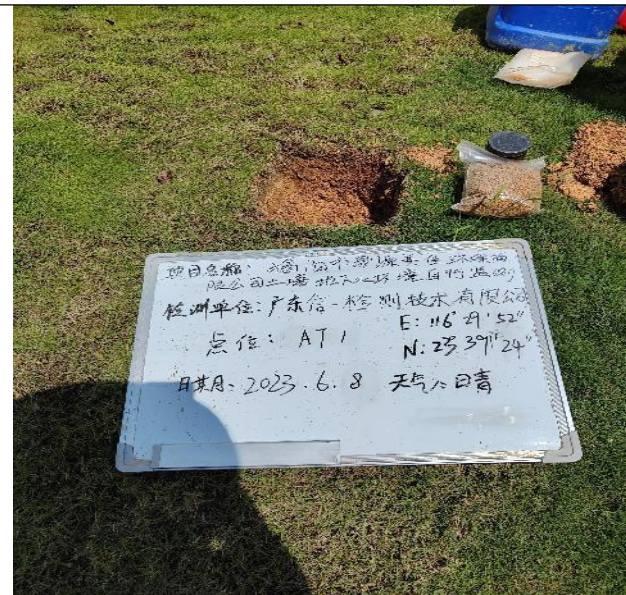 项目名称: 市 环保有
限公司土壤地下水环境自行监测
检测单位: 广东信一检测技术有限公司
点位: AT1
E: 116°29′52″
N: 25°39′24″
日期: 2023.6.8 天气: 晴